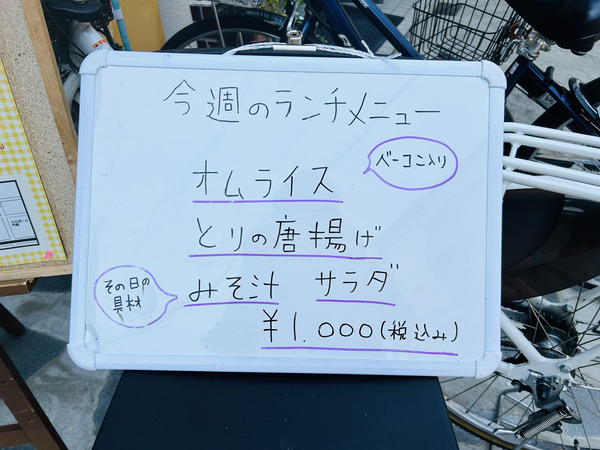 今週のランチメニュー
ベーコン入り
オムライス
とりの唐揚げ
その日の
具材
みそ汁 サラダ
¥1.000(税込み)